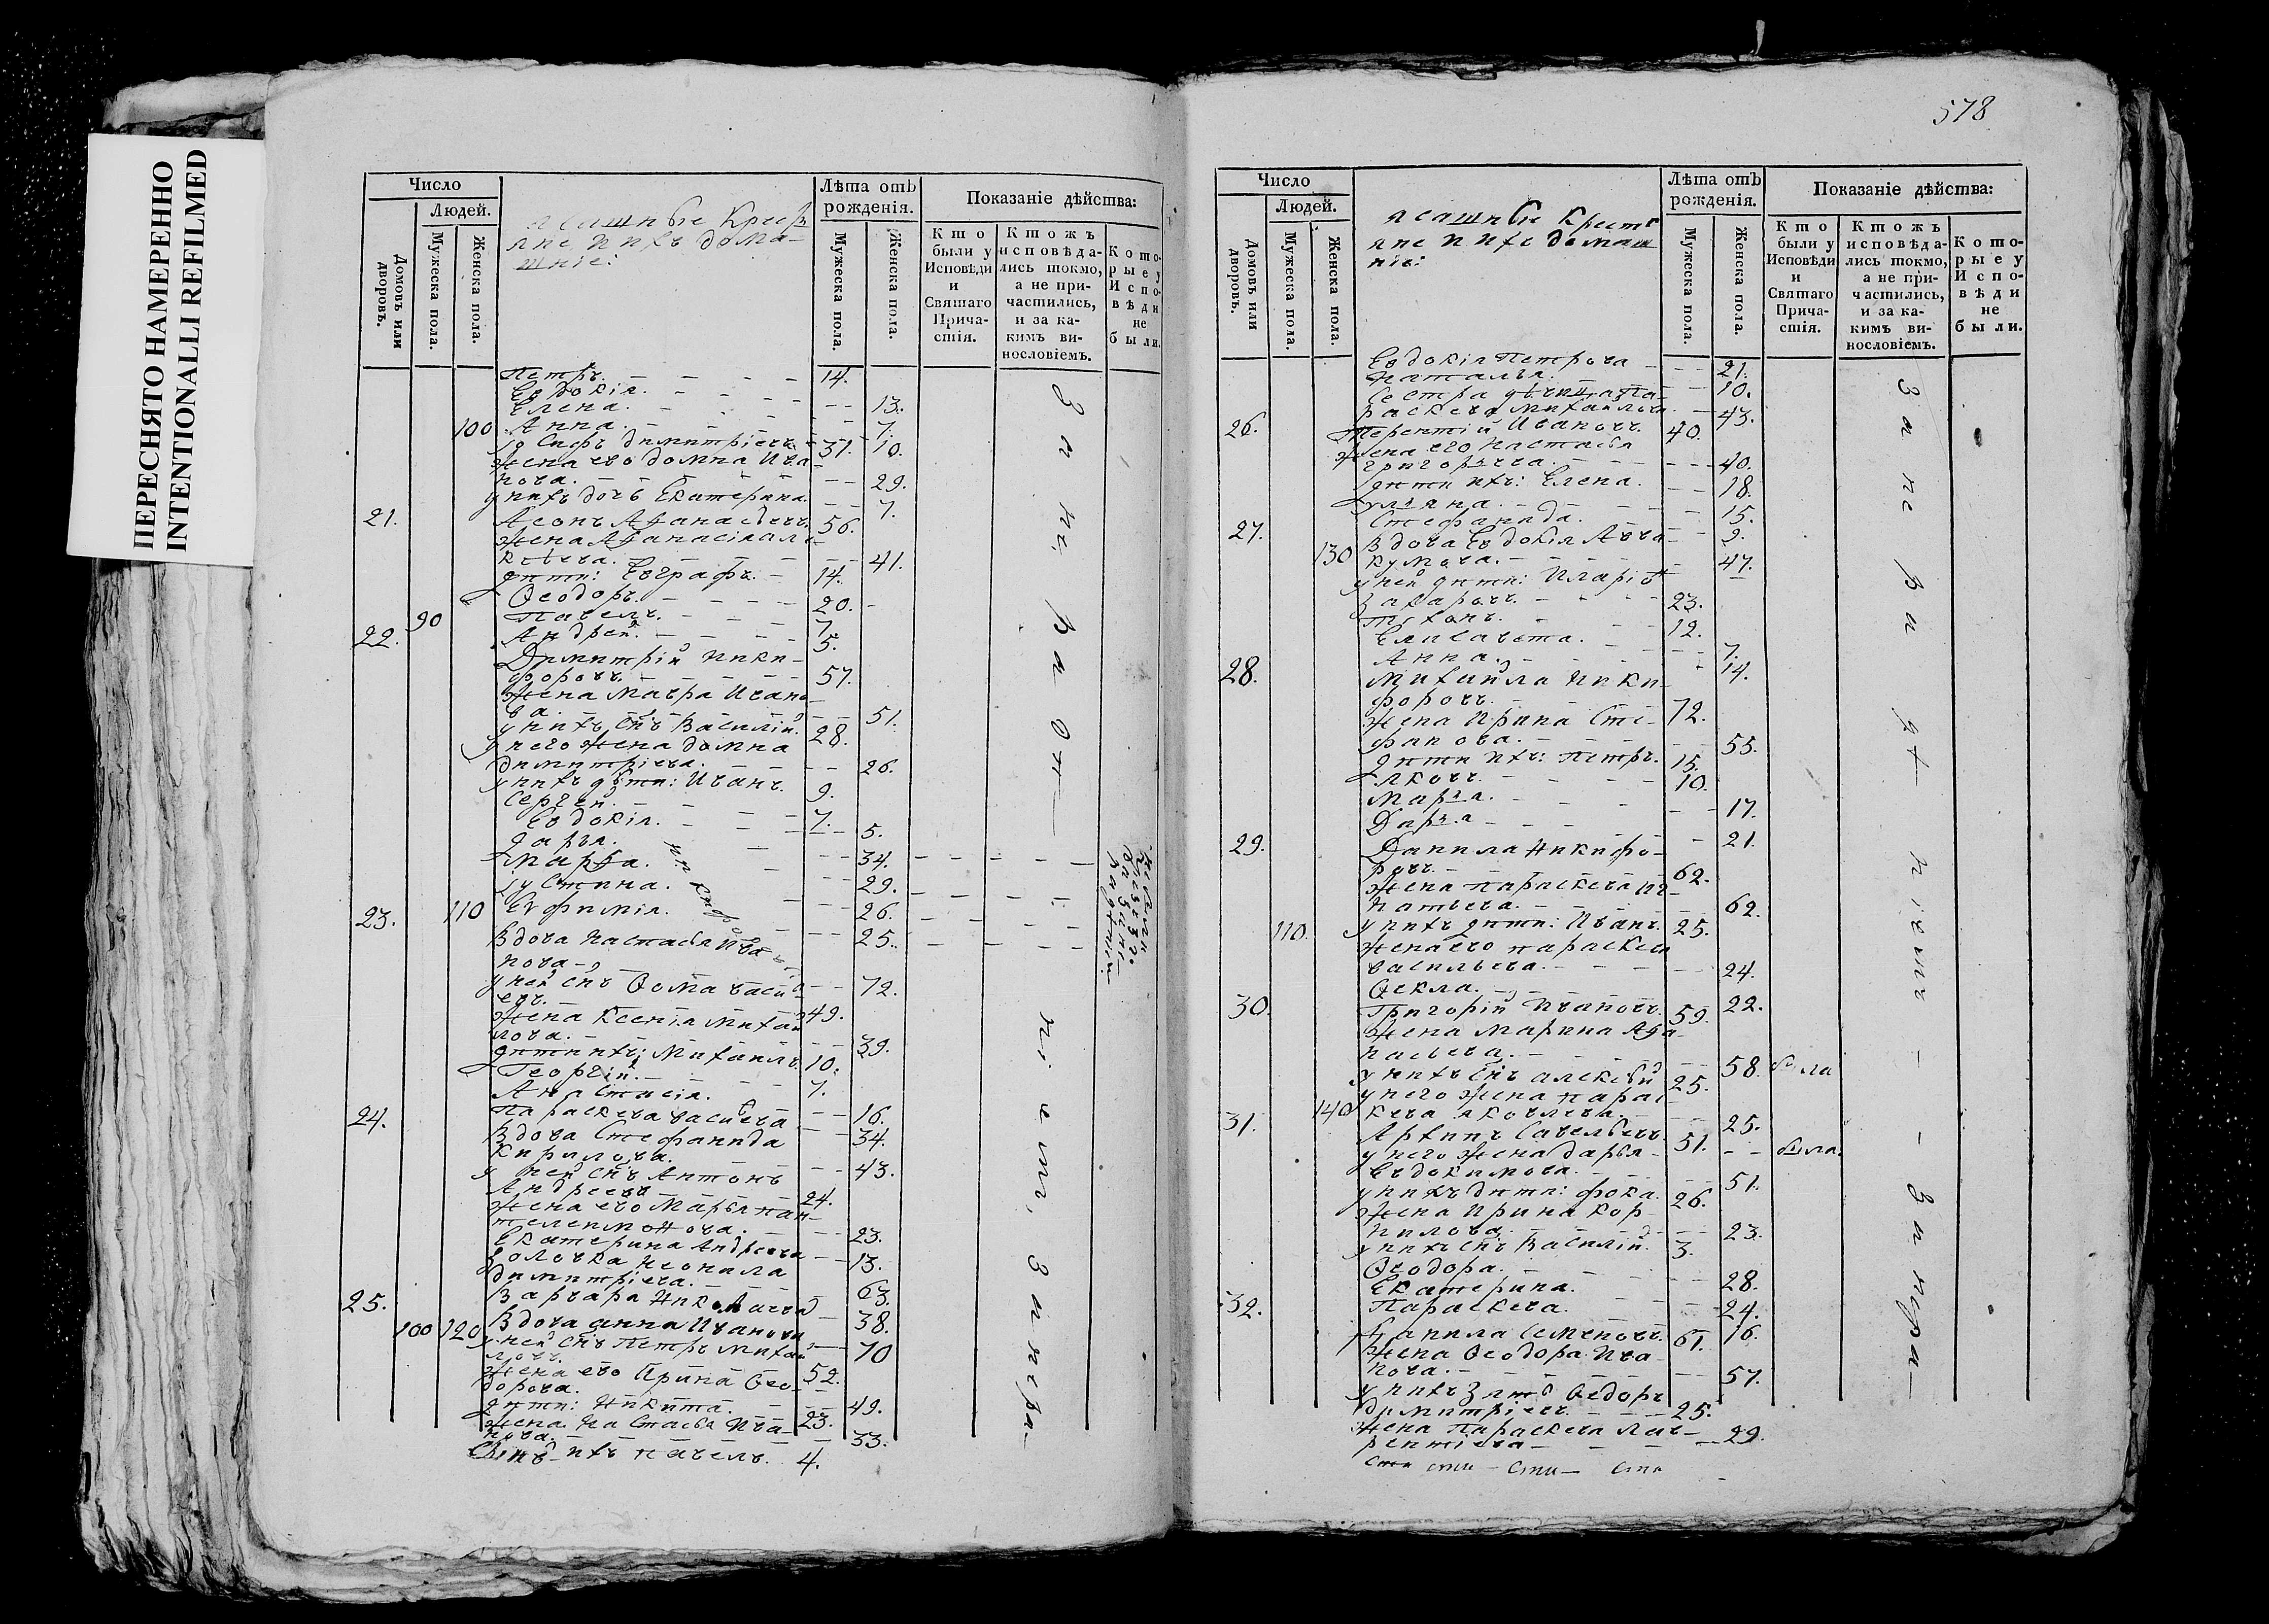 ПЕРЕСНЯТО НАМЕРЕННО
INTENTIONALLI REFILMED
Число
Людей.
Домовъ или дворовъ.
Мужеска пола.
Женска пола.
ясашные Крестья
яне ихъ дома-
шніе:
Лѣта отъ
рожденія.
Мужеска пола.
Женска пола.
Показаніе дѣйства:
Кто
были у
Исповѣди
и
Святаго
Прича-
стія.
Ктожъ
исповѣда-
лись токмо,
а не при-
частились,
и за ка-
кимъ ви-
нословіемъ.
Кото-
рые у
Испо-
вѣди
не
были.
Петръ. 14.
Евдокія. 13.
Елена. 7.
100 Анна. 10.
Димитріевъ 31.
жена ево домна Ива-
нова. 29.
у нихъ дочь Екатерина. 7.
21. Афанасьевъ 56.
жена Афанасія Але-
ксѣева. 41.
дѣти: Евграфъ. 14.
Ѳеодоръ. 20.
90 Павелъ. 7.
22. Андрей. 5.
Димитрій Ники-
форовъ. 57.
жена Мавра Ивано-
ва. 51.
у нихъ снъ Василій. 28.
у него жена домна
димитріева. 26.
у нихъ дѣти: Иванъ. 9.
Сергей. 7.
Евдокія. 5.
дарья. 34.
Марфа. 29.
іустина. 26.
23. 110 Евфимія. 25.
Вдова Настасья Ива-
нова 72.
у ней снъ Ѳома васи-
евъ. 49.
жена Ксенія Михаи
лова. 39.
дѣти ихъ: Михаилъ 10.
Георгій. 7.
Анастасія. 16.
24. Параскева васиева 34.
Вдова Стефанида
Кирилова. 43.
у ней снъ Антонъ
Андреевъ 24.
жена ево Марья пан-
телеимонова. 23.
Екатерина Андреева 13.
золовка неонила
димитріева. 63.
25. Варвара Николаева 38.
100 120 Вдова анна Иванова 70
у ней снъ Петръ Михаи
ловъ. 52.
жена ево Ирина Ѳео-
дорова. 49.
дѣти: Никита. 23.
жена Настасья Ива-
нова. 33.
Сынъ ихъ павелъ. 4.
За не радѣ-
ніемъ, за нера-
578
Число
Людей.
Домовъ или дворовъ.
Мужеска пола.
Женска пола.
ясашные Крестъ
яне ихъ домаш
ніе:
Лѣта отъ
рожденія.
Мужеска пола.
Женска пола.
Показаніе дѣйства:
Кто
были у
Исповѣди
и
Святаго
Прича-
стія.
Ктожъ
исповѣда-
лись токмо,
а не при-
частились,
и за ка-
кимъ ви-
нословіемъ.
Кото-
рые у
Испо-
вѣди
не
были.
Евдокія Петрова 21.
Наталья. 10.
Сестра дѣвица Па-
раскева Михайлова. 43.
26. Терентій Ивановъ. 40.
жена его Настасья
григорьева. 40.
дѣти ихъ: Елена. 18.
Ульяна. 15.
Стефанида. 9.
27. Вдова Евдокія Авва-
130 кумова. 47.
у ней дѣти: Иларіон
Захаровъ. 23.
Тихонъ. 12.
Елисавета. 7.
Анна. 14.
28. Михайла Ники-
форовъ. 72.
жена Ирина Сте-
фанова. 55.
дѣти ихъ: Петръ. 15.
Яковъ. 10.
Марья. 17.
Дарья 21.
29. Данила Никифо-
ровъ. 62.
жена параскева иг-
натьева. 62.
110. у нихъ дѣти: Иванъ. 25.
жена ево параскева
васильева. 24.
Ѳекла. 22.
30. Григорій Ивановъ. 59.
жена Марина Афа-
насьева. 58. была
у нихъ снъ алексѣй 25.
у него жена парас
140 кева яковлева. 25.
31. Архипъ Савельевъ 51. была.
у него жена дарья
Евдокимова. 51.
у нихъ дѣти: фока. 26.
жена Ирина Кор-
нилова. 23.
у нихъ снъ Василій. 3.
Ѳеодора. 28.
Екатерина. 24.
32. Параскева. 16.
Данила Семеновъ. 61.
жена Ѳеодора Ива-
нова. 57.
у нихъ зять Ѳедоръ
димитріевъ. 25.
жена Параскева Лав-
рентіева 29.
За не ра дѣ ніемъ - - За нера-